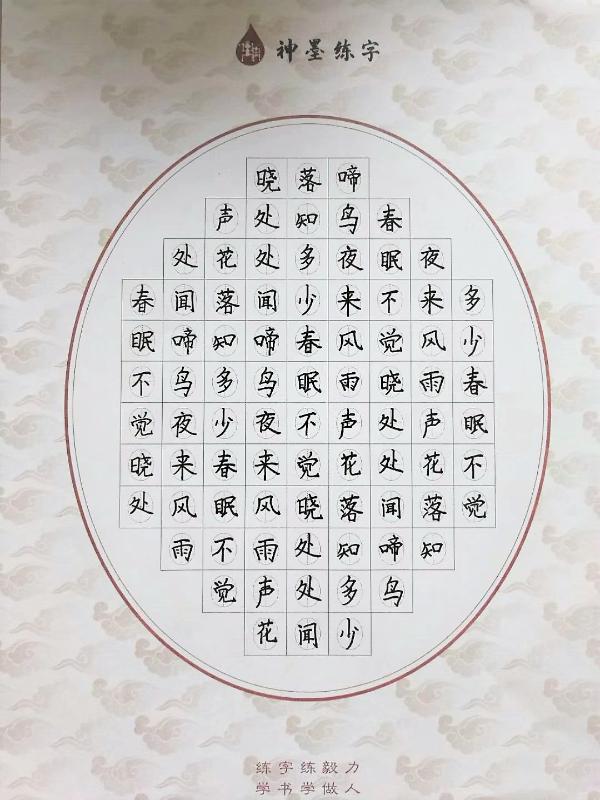 神墨练字
春眠不觉晓处
处闻啼鸟夜来风雨
声花落知多少春眠不觉
晓处处闻啼鸟夜来风雨声花
落知多少春眠不觉晓处处闻
啼鸟夜来风雨声花落知多少
春眠不觉晓处处闻啼鸟
夜来风雨声花落知
多少春眠不觉
练字练毅力
学书学做人